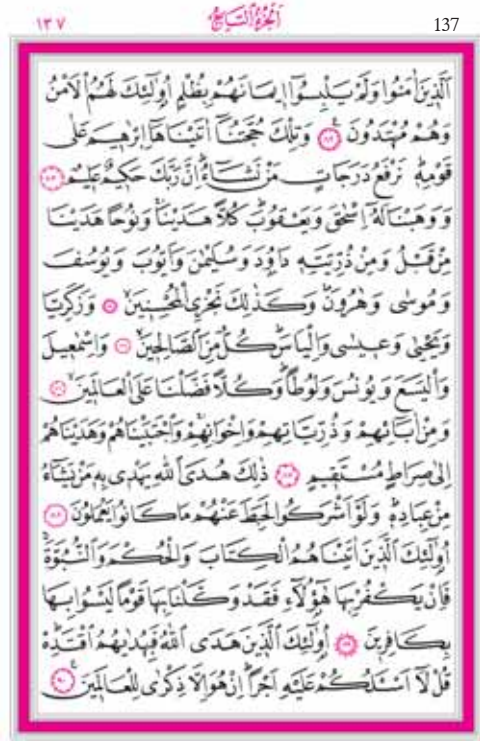 ١٣٧ اَلْجُزْءُ السَّابِعُ 137
اَلَّذينَ اٰمَنُوا وَلَمْ يَلْبِسُٓوا ا۪يمَانَهُمْ بِظُلْمٍ اُو۬لٰٓئِكَ لَهُمُ الْاَمْنُ
وَهُمْ مُهْتَدُونَ ﴿٨٢﴾ وَتِلْكَ حُجَّتُنَٓا اٰتَيْنَاهَٓا اِبْرٰه۪يمَ عَلٰى
قَوْمِه۪ۜ نَرْفَعُ دَرَجَاتٍ مَنْ نَشَٓاءُۜ اِنَّ رَبَّكَ حَك۪يمٌ عَل۪يمٌ ﴿٨٣﴾
وَوَهَبْنَا لَهُٓ اِسْحٰقَ وَيَعْقُوبَۜ كُلًّا هَدَيْنَاۚ وَنُوحًا هَدَيْنَا
مِنْ قَبْلُ وَمِنْ ذُرِّيَّتِه۪ دَاوُ۫دَ وَسُلَيْمٰنَ وَاَيُّوبَ وَيُوسُفَ
وَمُوسٰى وَهٰرُونَۜ وَكَذٰلِكَ نَجْزِي الْمُحْسِن۪ينَۙ ﴿٨٤﴾ وَزَكَرِيَّا
وَيَحْيٰى وَع۪يسٰى وَاِلْيَاسَۜ كُلٌّ مِنَ الصَّالِح۪ينَۙ ﴿٨٥﴾ وَاِسْمٰع۪يلَ
وَالْيَسَعَ وَيُونُسَ وَلُوطًاۜ وَكُلًّا فَضَّلْنَا عَلَى الْعَالَم۪ينَۙ ﴿٨٦﴾
وَمِنْ اٰبَٓائِهِمْ وَذُرِّيَّاتِهِمْ وَاِخْوَانِهِمْۚ وَاجْتَبَيْنَاهُمْ وَهَدَيْنَاهُمْ
اِلٰى صِرَاطٍ مُسْتَق۪يمٍ ﴿٨٧﴾ ذٰلِكَ هُدَى اللّٰهِ يَهْد۪ي بِه۪ مَنْ يَشَٓاءُ
مِنْ عِبَادِه۪ۜ وَلَوْ اَشْرَكُوا لَحَبِطَ عَنْهُمْ مَا كَانُوا يَعْمَلُونَ ﴿٨٨﴾
اُو۬لٰٓئِكَ الَّذ۪ينَ اٰتَيْنَاهُمُ الْكِتَابَ وَالْحُكْمَ وَالنُّبُوَّةَۚ
فَاِنْ يَكْفُرْ بِهَا هٰٓؤُ۬لَٓاءِ فَقَدْ وَكَّلْنَا بِهَا قَوْمًا لَيْسُوا بِهَا
بِكَافِر۪ينَ ﴿٨٩﴾ اُو۬لٰٓئِكَ الَّذ۪ينَ هَدَى اللّٰهُ فَبِهُدٰيهُمُ اقْتَدِهْۜ
قُلْ لَٓا اَسْـَٔلُكُمْ عَلَيْهِ اَجْرًاۜ اِنْ هُوَ اِلَّا ذِكْرٰى لِلْعَالَم۪ينَ۟ ﴿٩٠﴾